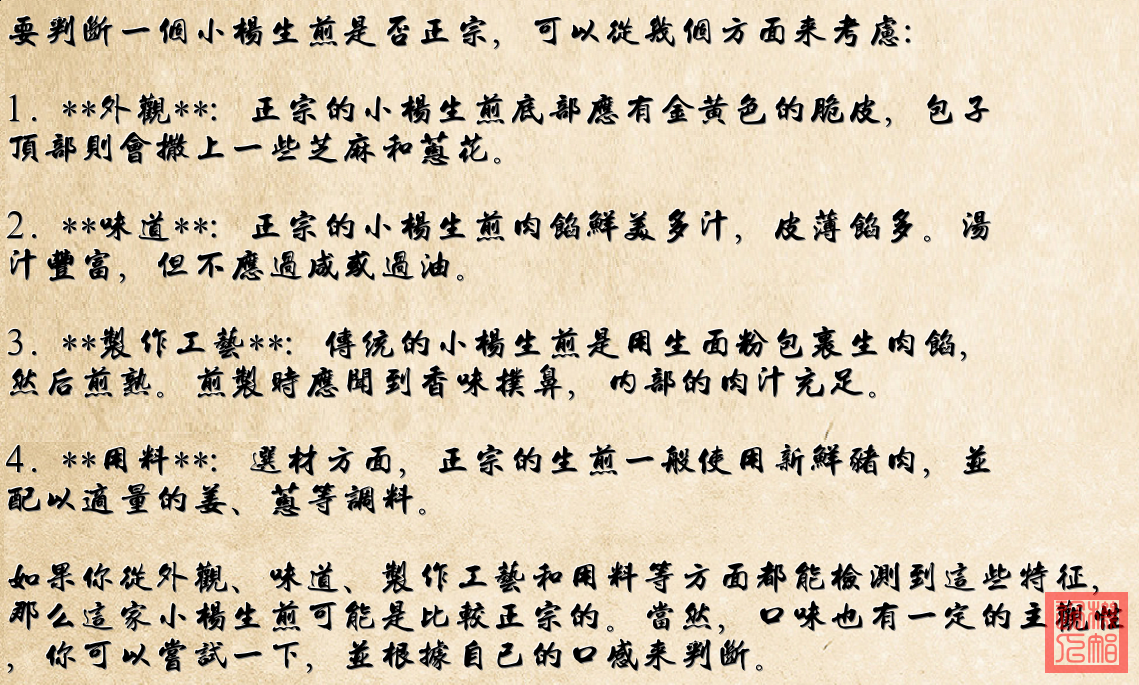 要判斷一個小楊生煎是否正宗，可以從幾個方面来考慮:
1. **外觀**: 正宗的小楊生煎底部應有金黃色的脆皮，包子
頂部則會撒上一些芝麻和蔥花。
2. **味道**: 正宗的小楊生煎肉餡鮮美多汁，皮薄餡多。湯
汁豐富，但不應過咸或過油。
3. **製作工藝**: 傳统的小楊生煎是用生面粉包裹生肉餡，
然后煎熟。煎製時應聞到香味撲鼻，内部的肉汁充足。
4. **用料**: 選材方面，正宗的生煎一般使用新鮮豬肉，並
配以適量的姜、蔥等調料。
如果你從外觀、味道、製作工藝和用料等方面都能檢測到這些特征，
那么這家小楊生煎可能是比較正宗的。當然，口味也有一定的主觀性
，你可以嘗試一下，並根據自己的口感来判斷。